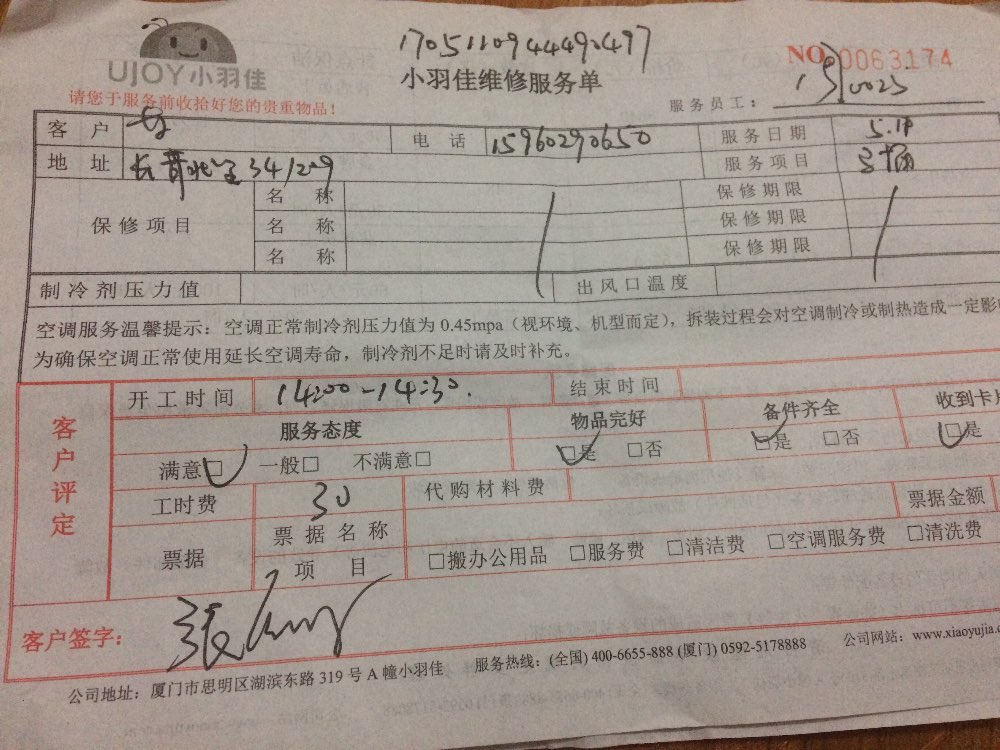 17051109444490497
UJOY小羽佳
小羽佳维修服务单
NO 0063174
请您于服务前收拾好您的贵重物品！
服务员工：
客 户 电 话 15960290650 服务日期
地 址 34/209 服务项目
保修项目
名 称 保修期限
名 称 保修期限
名 称 保修期限
制冷剂压力值 出风口温度
空调服务温馨提示：空调正常制冷剂压力值为 0.45mpa（视环境、机型而定），拆装过程会对空调制冷或制热造成一定影
为确保空调正常使用延长空调寿命，制冷剂不足时请及时补充。
客户评定
开工时间 14:00-14:30. 结束时间
服务态度 物品完好 备件齐全 收到卡片
满意□ 一般□ 不满意□ □是 □否 □是 □否 □是
工时费 30 代购材料费 票据金额
票据 票据名称
项 目 □搬办公用品 □服务费 □清洁费 □空调服务费 □清洗费
客户签字： 张
公司地址：厦门市思明区湖滨东路 319 号 A 幢小羽佳 服务热线：(全国) 400-6655-888 (厦门) 0592-5178888 公司网站：www.xiaoyujia.c